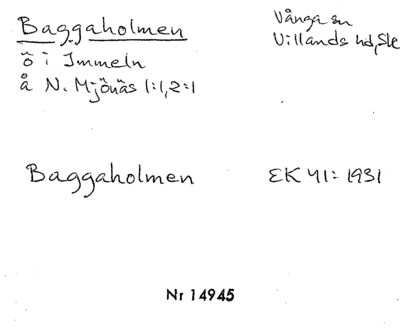 Baggaholmen
ö i Immeln
å N. Mjönäs 1:1, 2:1
Vånga sn
Villands hd, Sk
Baggaholmen
EK 41: 1931
Nr 14945